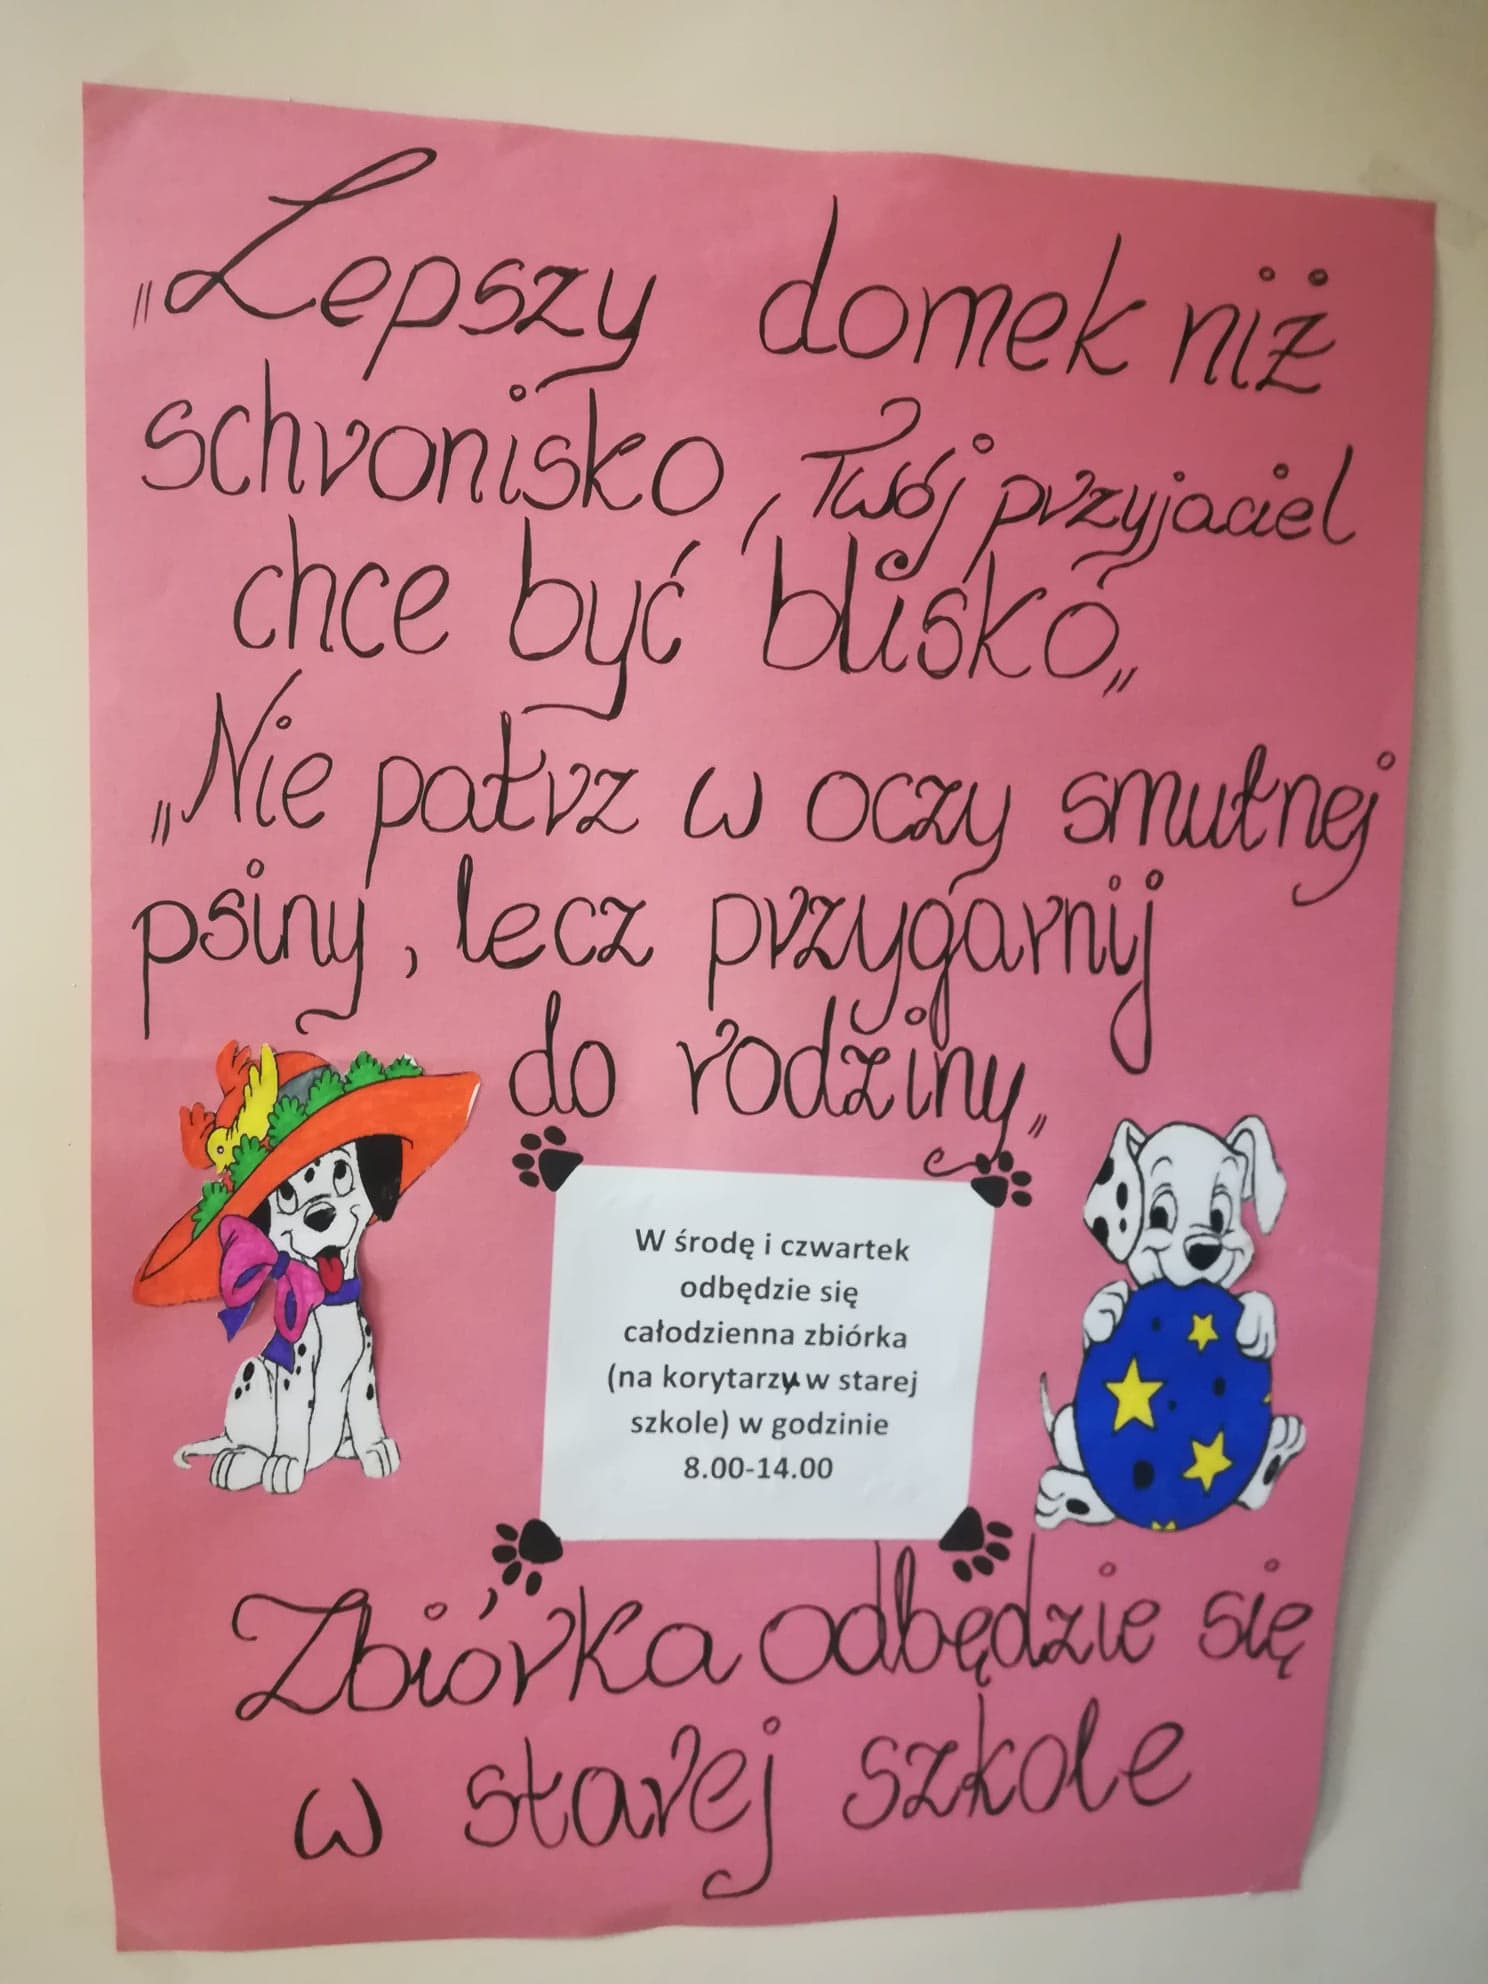 „Lepszy domek niż
schronisko, Twój przyjaciel
chce być blisko„
„Nie patrz w oczy smutnej
psiny, lecz przygarnij
do rodziny„
W środę i czwartek
odbędzie się
całodzienna zbiórka
(na korytarzy w starej
szkole) w godzinie
8.00-14.00
Zbiórka odbędzie się
w starej szkole